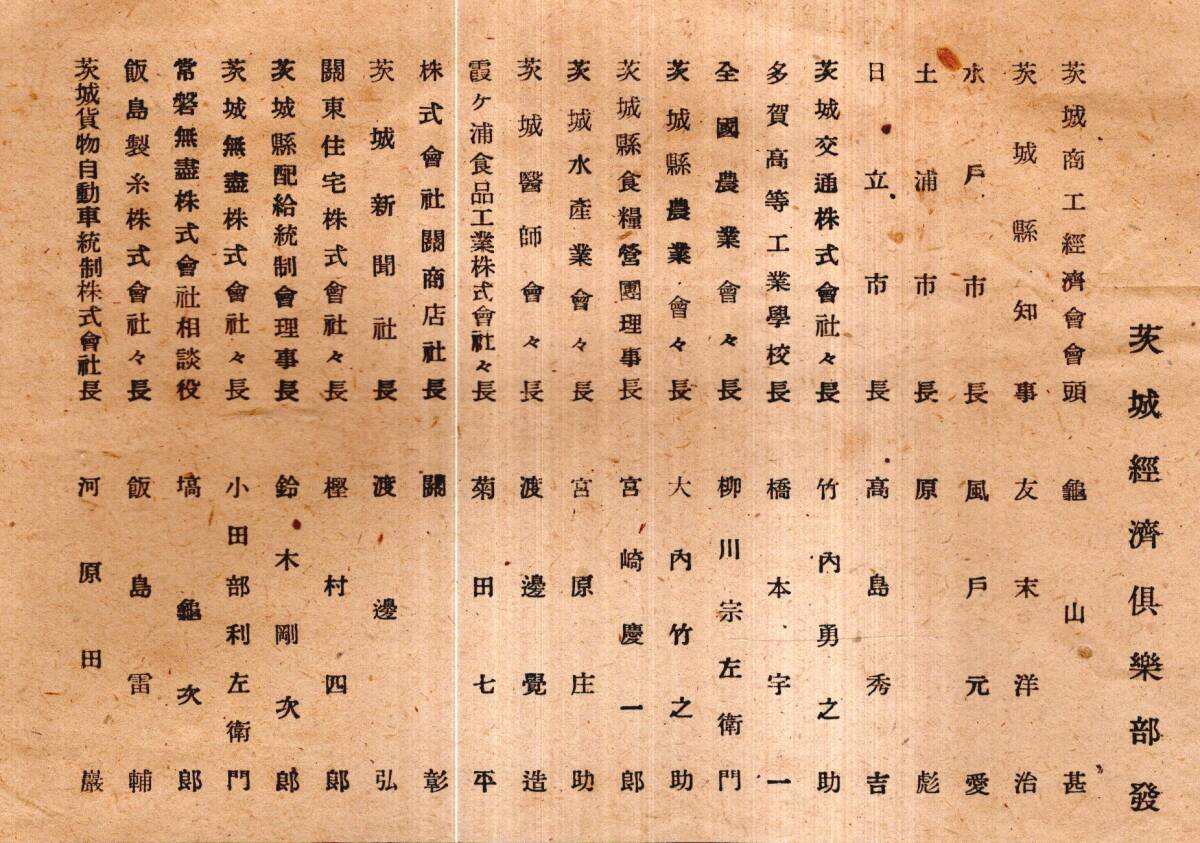 茨城經濟俱樂部發
茨城商工經濟會會頭 龜山甚
茨城縣知事 友末洋治
水戶市長 風戶元愛
土浦市長 原彪
日立市長 高島秀吉
茨城交通株式會社々長 竹內勇之助
多賀高等工業學校長 橋本宇一
全國農業會々長 柳川宗左衛門
茨城縣農業會々長 大內竹之助
茨城縣食糧營團理事長 宮崎慶一郎
茨城水產業會々長 宮原庄助
茨城醫師會々長 渡邊覺造
霞ヶ浦食品工業株式會社々長 菊田七平
株式會社關商店社長 關彰
茨城新聞社長 渡邊弘
關東住宅株式會社々長 樫村四郎
茨城縣配給統制會理事長 鈴木剛次郎
茨城無盡株式會社々長 小田部利左衛門
常磐無盡株式會社相談役 塙龜次郎
飯島製糸株式會社々長 飯島雷輔
茨城貨物自動車統制株式會社長 河原田巖